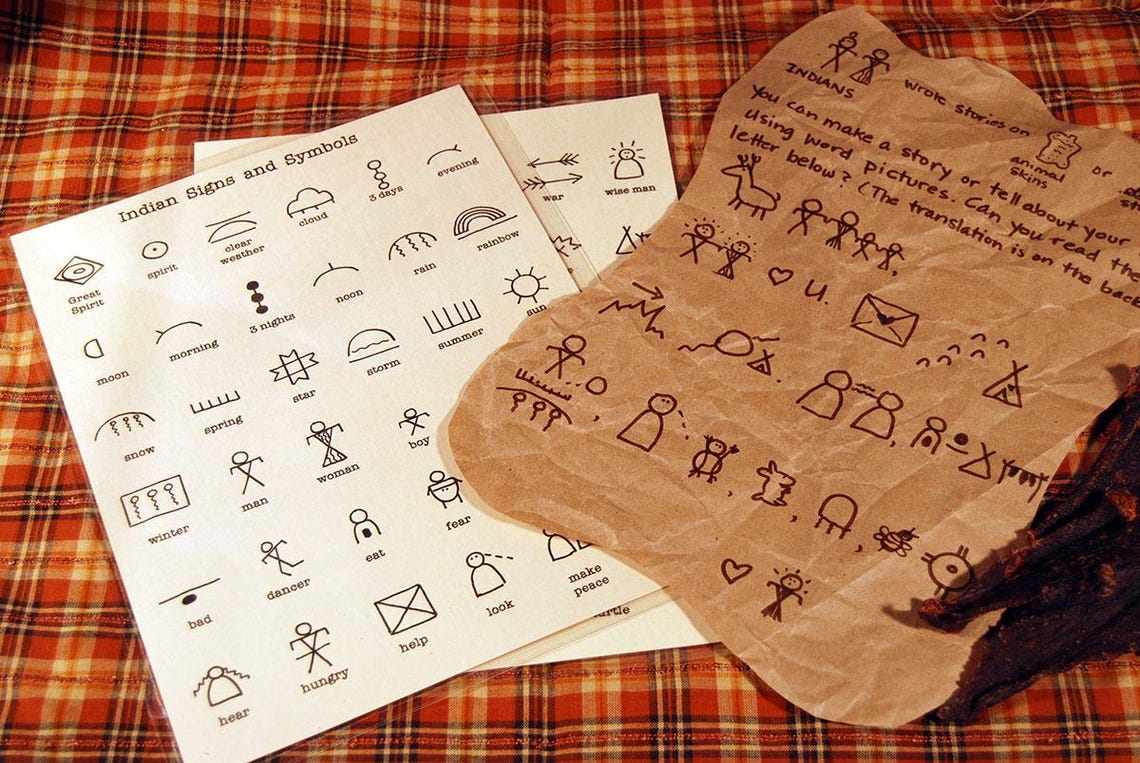 Indian Signs and Symbols
Great Spirit
spirit
clear weather
cloud
3 days
evening
moon
morning
3 nights
noon
rain
rainbow
snow
spring
star
storm
summer
sun
winter
man
woman
boy
bad
dancer
eat
fear
hear
hungry
help
look
make peace
war
wise man
turtle
INDIANS wrote stories on animal skins or
You can make a story or tell about your
using word pictures. Can you read the
letter below? (The translation is on the back
U.